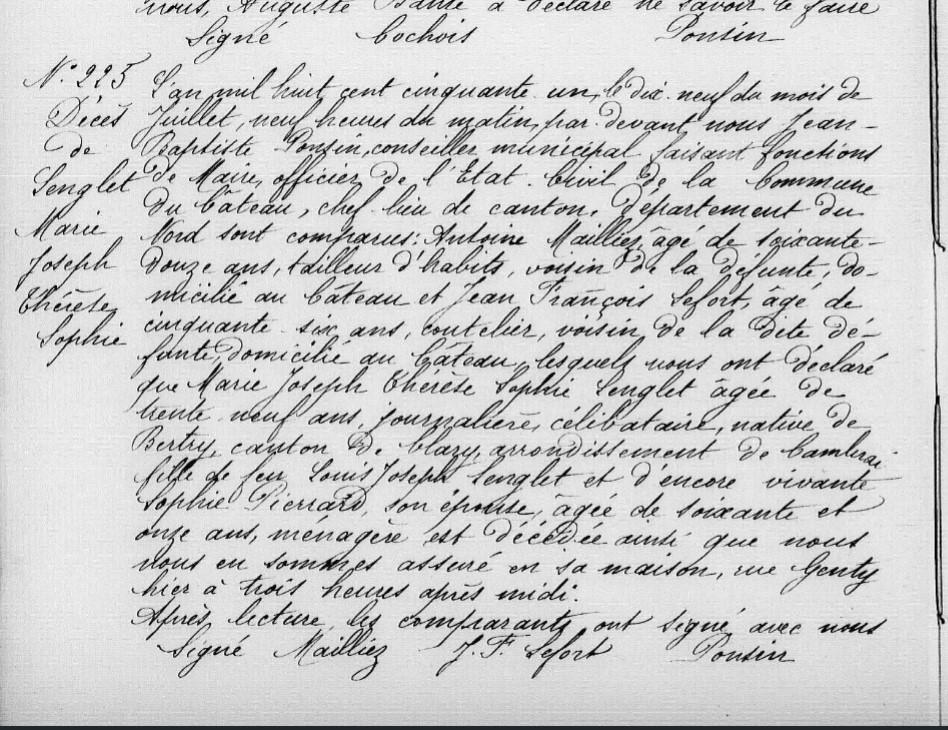 nous, Auguste Dante a déclaré ne savoir le faire
Signé Cochois Ponsin
N° 225
Décès
de
Senglet
Marie
Joseph
Thérèse
Sophie
L'an mil huit cent cinquante un, le dix neuf du mois de
Juillet, neuf heures du matin, par devant nous Jean-
Baptiste Ponsin, conseiller municipal faisant fonctions
de Maire, officier de l'Etat-Civil de la Commune
du Câteau, chef lieu de canton, Département du
Nord sont comparus: Antoine Mailliez, âgé de soixante-
Douze ans, tailleur d'habits, voisin de la défunte, do-
micilié au Câteau et Jean François Lefort, âgé de
cinquante-six ans, coutelier, voisin de la dite dé-
funte, domicilié au Câteau, lesquels nous ont déclaré
que Marie Joseph Thérèse Sophie Senglet âgée de
trente neuf ans, journalière, célibataire, native de
Bertry, canton de Clary, arrondissement de Cambrai
fille de feu Louis Joseph Senglet et d'encore vivante
Sophie Pierrard, son épouse, âgée de soixante et
onze ans, ménagère est décédée ainsi que nous
nous en sommes assuré en sa maison, rue Genty
hier à trois heures après midi.
Après lecture, les comparants ont signé avec nous
Signé Mailliez J. F. Lefort Ponsin